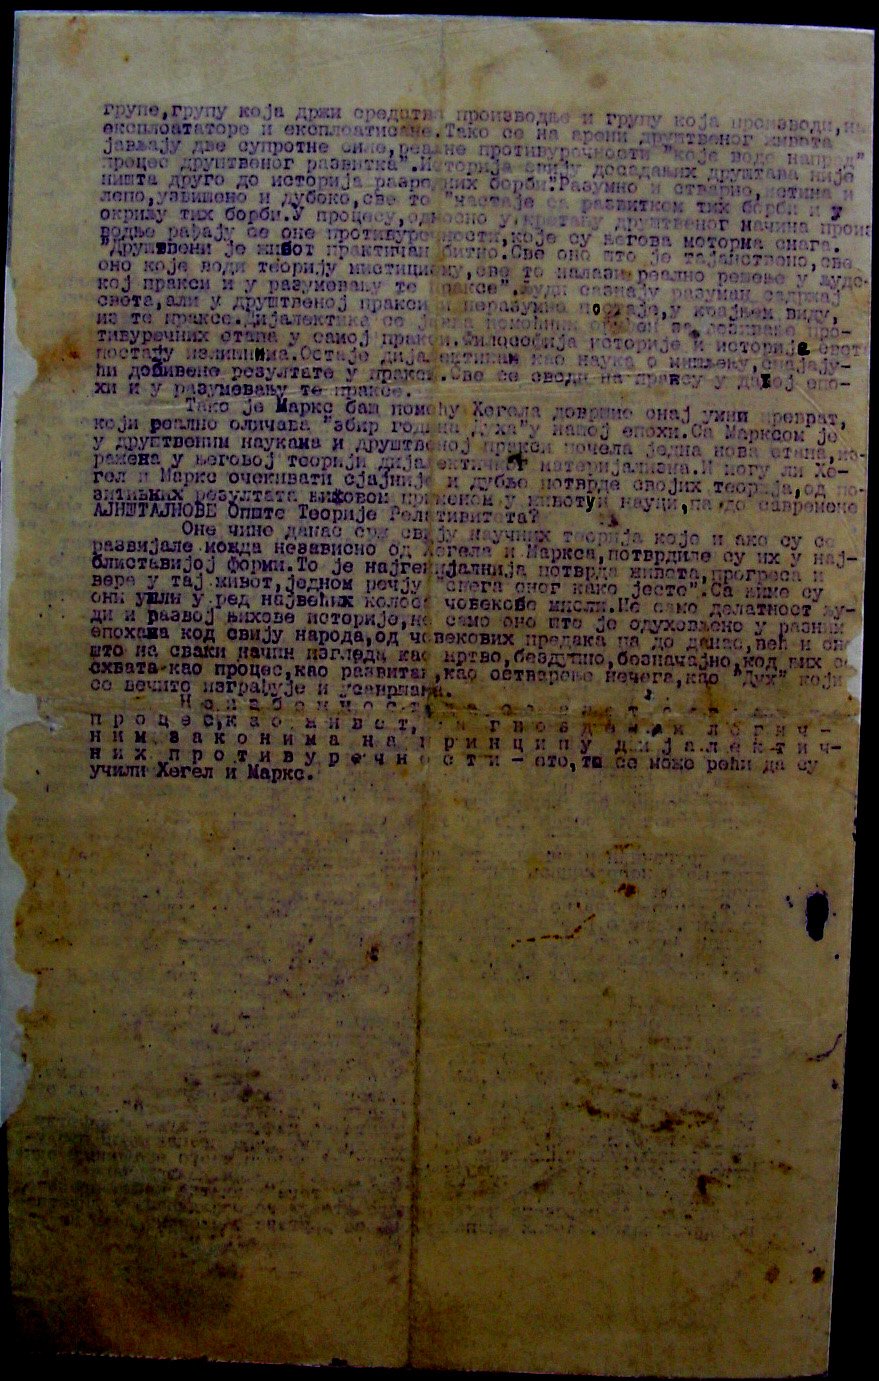 групе,групу која држи средства производње и групу која производи,
експлоататоре и експлоатисане.Тако се на арени друштвеног живота
јављају две супротне силе,реалне противуречности "које воде напред"
процес друштвеног развитка".Историја свију досадањих друштава није
ништа друго до историја разредних борби.Разумно и стварно,истина и
лепо,узвишено и дубоко,све то "настаје са развитком тих борби и у
окриљу тих борби.У процесу,односно у кретању друштвеног начина произ
водње рађају се оне противуречности,које су његова моторна снага.
"Друштвени је живот практичан битно.Све оно што је тајанствено,све
оно које води теорију мистицизму,све то налази реално решење у људс-
кој пракси и у разумевању те праксе".Људи сазнају разуман садржај
света,али у друштвеној пракси и неразумно постаја,у крајњем виду,
из те праксе.Дијалектика се јавља про-
тивуречних стања у самој пракси.Филозофија историје и историја свет
постају излишнима.Остаје дијалектика као наука о мишљењу,спајају-
ћи добивене резултате у пракси.Све се своди на праксу у датој епо-
хи и у разумевању те праксе.
Тако је Маркс баш помоћу Хегела довршио онај умни преврат,
који реално оличава "збир година духа"у нашој епохи.Са Марксом је
у друштвеним наукама и друштвеној пракси почела једна нова етапа,из-
ражена у његовој теорији дијалектичког материјализма.И могу ли Хе-
гел и Маркс очекивати сјајније и дубље потврде својих теорија,од по-
зитивних резултата њиховом применом у животу и науци,па до савремене
АЈНШТАЈНОВЕ Опште Теорије Релативитета?
Оне чине данас срж свију научних теорија које и ако су се
развијале можда независно од Хегела и Маркса,потврдиле су их у нај-
блиставијој форми.То је најгенијалнија потврда живота,прогреса и
вере у тај живот,једном речју "снега оног како јесте".Са њиме су
они ушли у ред највећих колоса човекове мисли.Не само делатност љу-
ди и развој њихове историје,не само оно што је одуховљено у разним
епохама код свију народа,од човекових предака па до данас,већ и оно
што на сваки начин изгледа као мртво,бездушно,безначајно,код њих се
схвата као процес,као развитак,као остварење нечега,као "Дух" који
се вечито изграђује и усавршава.
процес,као живот, гвозденим логич-
ним законима на принципу дијалектич-
них противуречности - ето,то се може рећи да су
учили Хегел и Маркс.